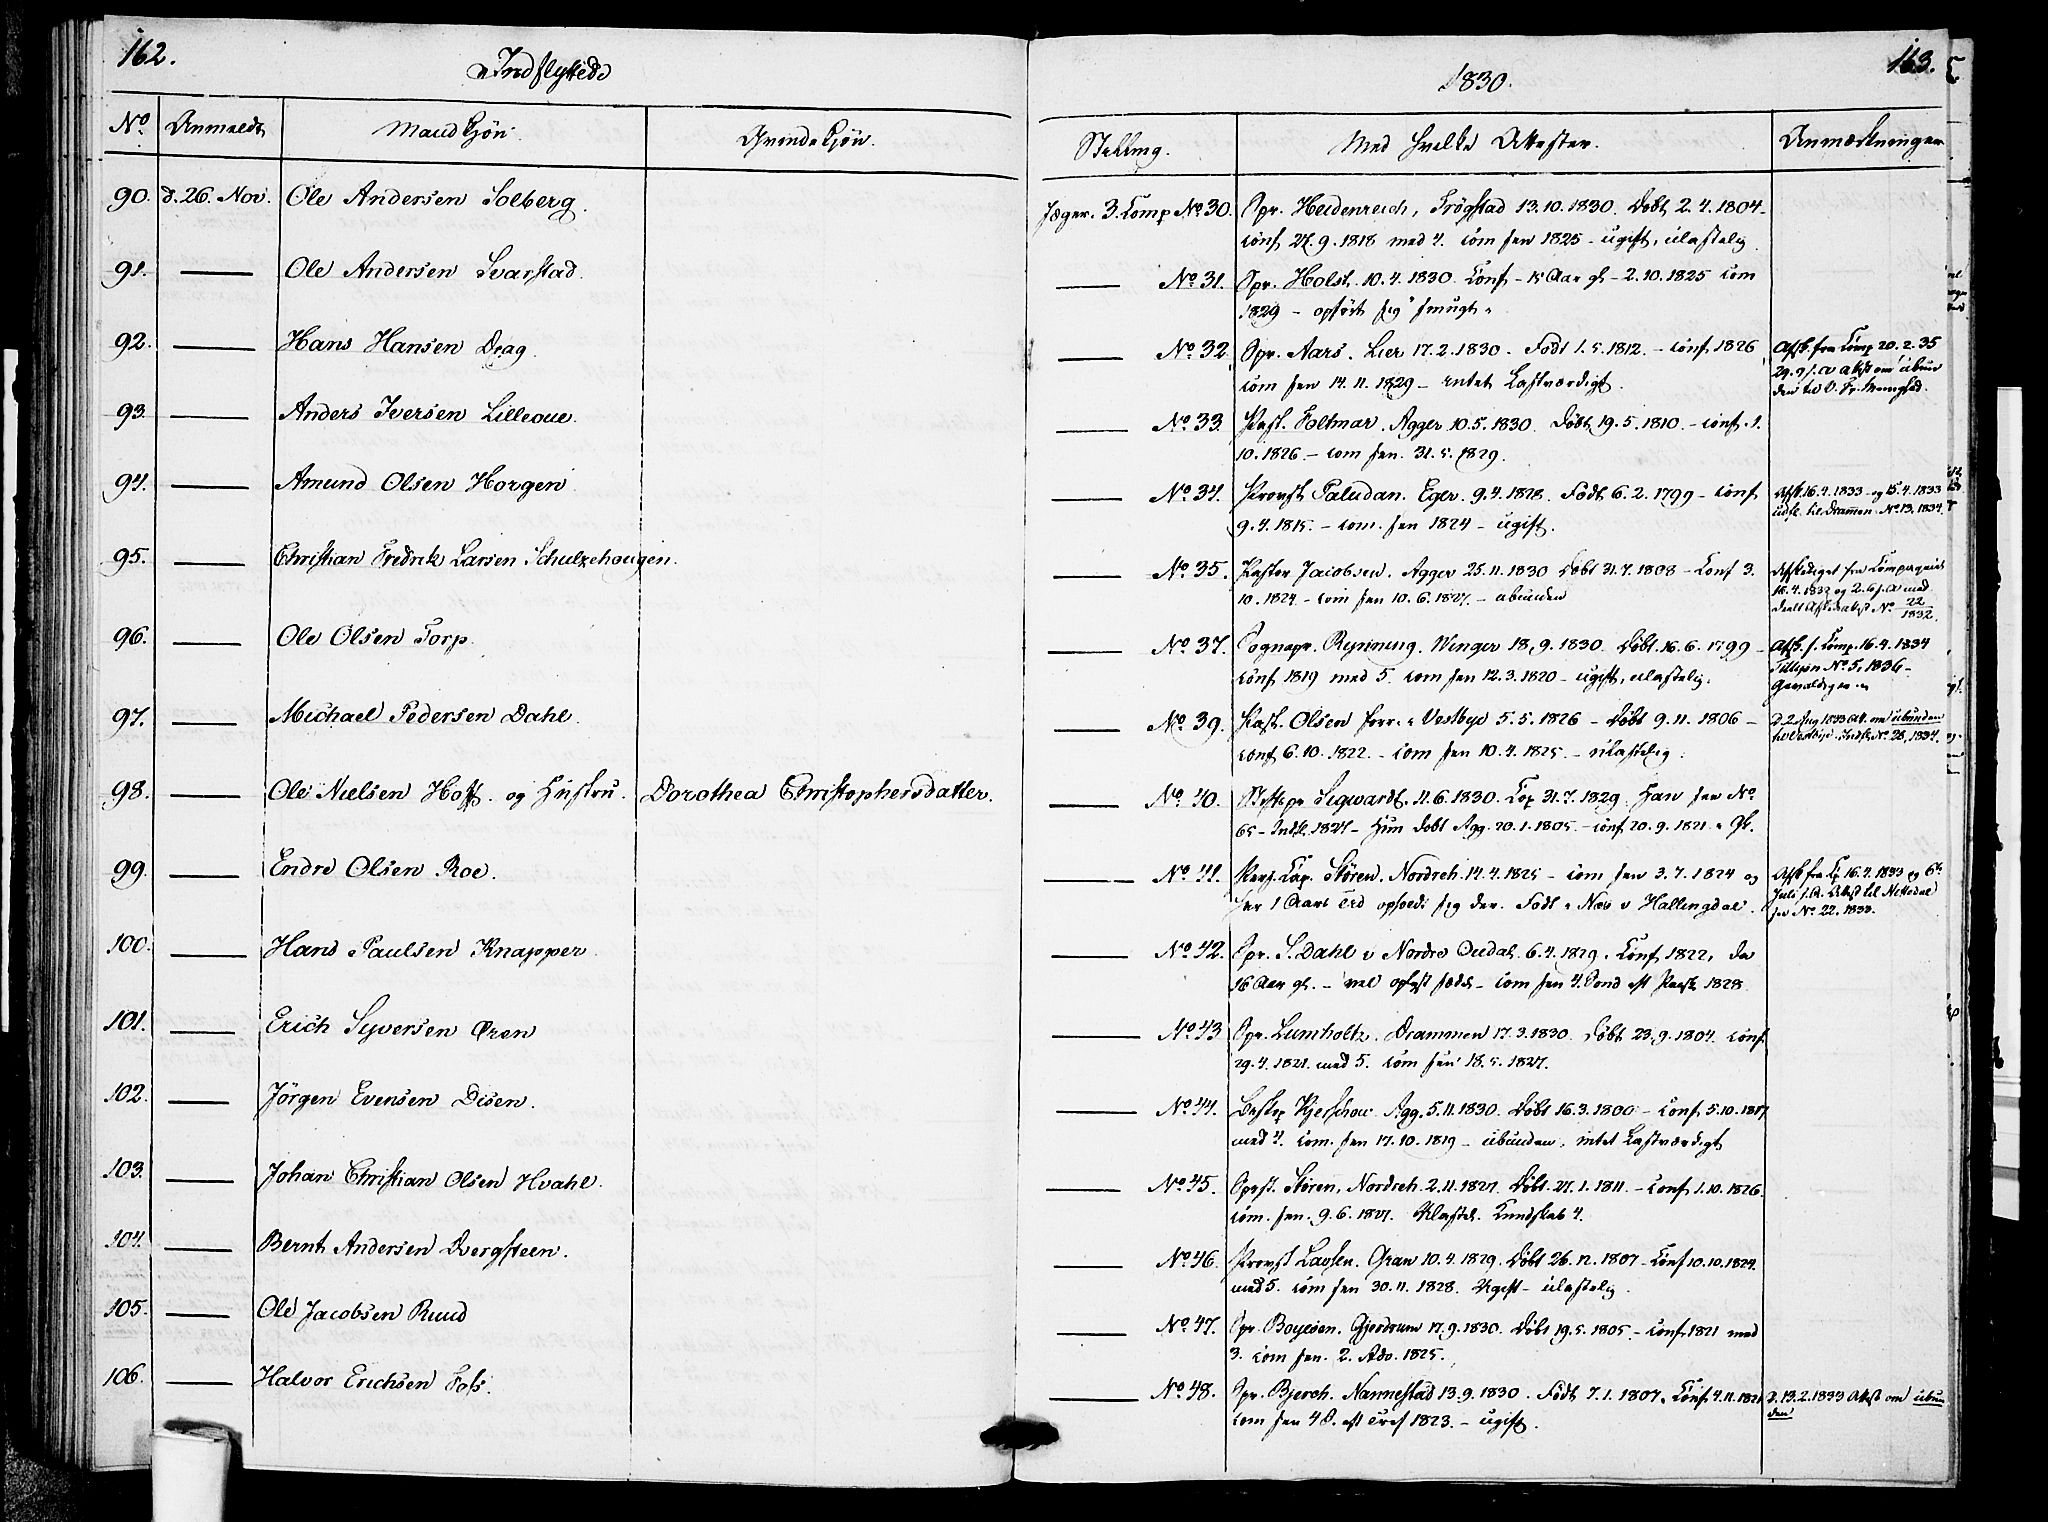 162.
Indflyttede
No Anmeldt Mandkjön Qvindekjön.
90. d. 26. Nov. Ole Andersen Solberg.
91. Ole Andersen Svarstad.
92. Hans Hansen Drag.
93. Anders Iversen Lilleoue.
94. Amund Olsen Horgen
95. Christian Fredrik Larsen Schulzehougen.
96. Ole Olsen Torp.
97. Michael Pedersen Dahl.
98. Ole Nielsen Hoff. og Hustru. Dorothea Christophersdatter.
99. Endre Olsen Roe.
100. Hans Paulsen Knapper.
101. Erich Syversen Ören
102. Jörgen Evensen Disen.
103. Johan Christian Olsen Hvahl.
104. Bernt Andersen Dvergsteen.
105. Ole Jacobsen Ruud
106. Halvor Erichsen Foss.
163.
1830.
Stilling. Med hvilke Attester. Anmærkninger
Jæger. 3. Comp No 30. Spr. Heidenreich, Trögstad 13.10.1830. Döbt 2.4.1804-
conf 27.9.1818 med 4. com sen 1825 - ugift, ulastelig.
No 31. Spr. Holst. 10.4.1830. Conf - 15 Aar gl - 2.10.1825 com
1829 - opfört sig smugt
No 32. Spr. Aars. Lier 17.2.1830. Födt 1.5.1812. - conf 1826 Afsk. fra Comp 20.2.35
com sen 14.11.1829 - intet Lastværdigt. 29.9 s. A attest om ubun
den
No 33. Past. Foltmar. Agger 10.5.1830. Döbt 19.5.1810. - conf. 1.
10.1826. - com sen. 31.5.1829.
No 34. Provst Paludan. Eger. 9.4.1828. Födt 6.2.1799 - conf Afsk. 16.4.1833 - og 15.4.1833
9.4.1815. - com. sen 1824 - ugift. udfl. til Drammen No 13. 1834.
No 35. Pastor Jacobsen. Agger 25.11.1830 Döbt 31.7.1808 - Conf 3. Afskediget fra Compagniet
10.1824 - com sen 10.6.1827. - ubunden 16.4.1832 og 2.6 s. A med
deelt Afskedsattest No 22/1832.
No 37. Sognepr. Rynning. Winger 18.9.1830. Döbt. 16.6.1799 - Afsk. f. Comp. 16.4.1834
conf 1819 med 5. com sen 12.3.1820 - ugift, ulastelig. No 5, 1836 -
No 39. Past. Olsen Vestbye 5.5.1826 - Döbt 9.11.1806 - D. 2 Aug 1833 att. om ubunden
conf 6.10.1822. - com sen 10.4.1825. - ulastelig. til Vestbye. Indfl. No 28, 1834.
No 40. Stiftspr Sigwardt. 11.6.1830. Cop 31.7.1829. Han see No
65 - Indfl. 1827 - Hun döbt Agg. 20.1.1805. - conf 20.9.1821
No 41. Pers. Cap. Stören. Nordreh. 14.4.1825 - com sen 3.7.1824 og Afsk fra Cp 16.4.1833 og 6te
her 1 Aars Tid ophold sig der. Födt Næs v Hallingdal. Juli s. A. Attest til Nittedal
see No 22. 1833.
No 42. Spr. S. Dahl v Nordre Oudal. 6.4.1829. Conf 1822, da
16 Aar gl. - vel oplyst sædel - com sen 4. Sönd eft Paask 1828
No 43 Spr. Lumholtz. Drammen 17.3.1830. Döbt 23.9.1804. conf
29.4.1821. med 5. com sen 18.5.1827.
No 44. Bispp Kjerschow. Agg. 5.11.1830. Döbt 16.3.1800 - conf 5.10.1817
med 4. com. sen 17.10.1819 - ubunden, intet Lastværdigt
No 45. Stören, Nordreh. 2.11.1827. Döbt. 27.1.1811. - conf 1.10.1826.
com. sen. 9.6.1827. Ulastel. Kundskab 4.
No 46. Provst Lassen. Gran 10.4.1829. Döbt 26.12.1807 - Conf 10.10.1824.
med 5. com sen 30.11.1828. Ugift - ulastelig.
No 47. Spr. Boyesen. Gjerdrum 17.9.1830. Döbt 19.5.1805. - conf 1821 med
3. com sen. 2. Adv. 1825.
No 48. Spr. Bjerch. Nannestad 13.9.1830. Födt 7.1.1807. Conf 4.11.1821 D. 13.2.1833 Attest om ubun
com sen 4 S. eft Tref 1823. - ugift. den